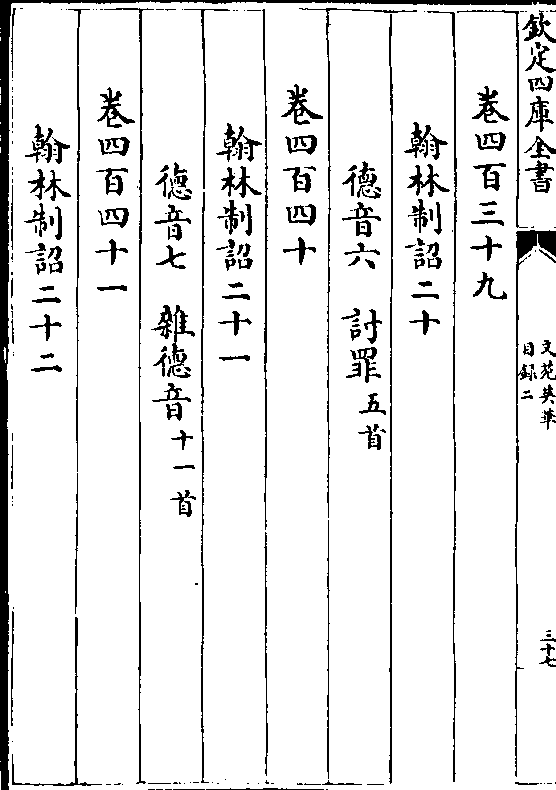 欽定四庫全書
文苑英華
目録二
三十七
卷四百三十九
翰林制詔二十
德音六 討罪五首
卷四百四十
翰林制詔二十一
德音七 雜德音十一首
卷四百四十一
翰林制詔二十二